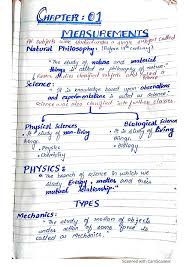 CHAPTER : 01
MEASUREMENTS
All subjects were studied under a single subject called
Natural Philosophy: (Before 19th century)
"The study of nature and material
things is called as philosophy of nature."
Science:
"It is knowledge based upon observations
and experimentations is called as science."
Science was also classified into further classes.
Physical Sciences
Biological Science
It is study of non-living
It is study of living
things.
things.
• Physics
• Biology.
• Chemistry
PHYSICS:
The branch of science in which we
study Energy, matter and their
mutual relationship."
TYPES
Mechanics:
The study of motion of objects
under action of some force is
called as Mechanics.
Scanned with CamScanner